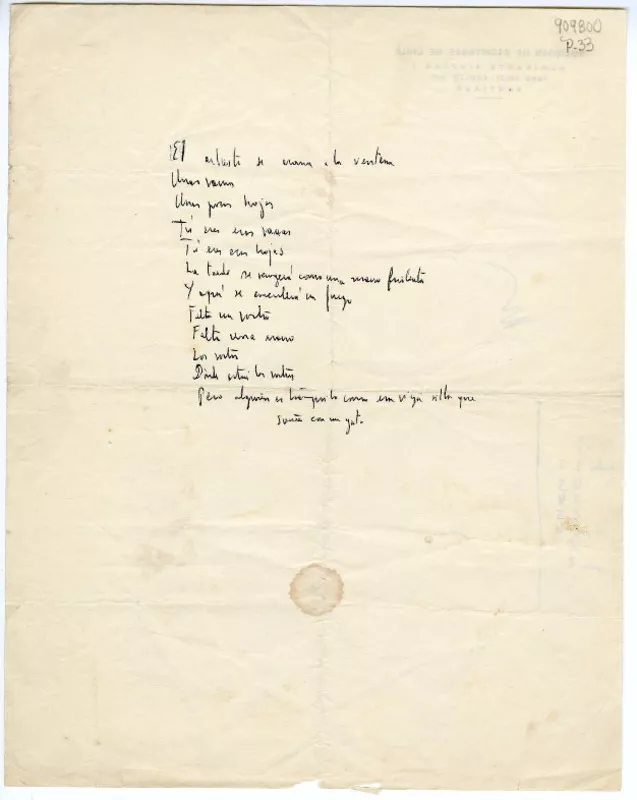 909800
P-33
SOCIEDAD DE ESCRITORES DE CHILE
SANTIAGO
El arbusto se asoma a la ventana
Unas ramas
Unas pocas hojas
Tú eres esas ramas
Tú eres esas hojas
La tarde se como una mano
Y aquí se encenderá un fuego
Falta un rostro
Falta una mano
Los rostros
Dónde están los rostros
Pero alguien es tranquilo como esa vieja silla que
sueña con un gato.